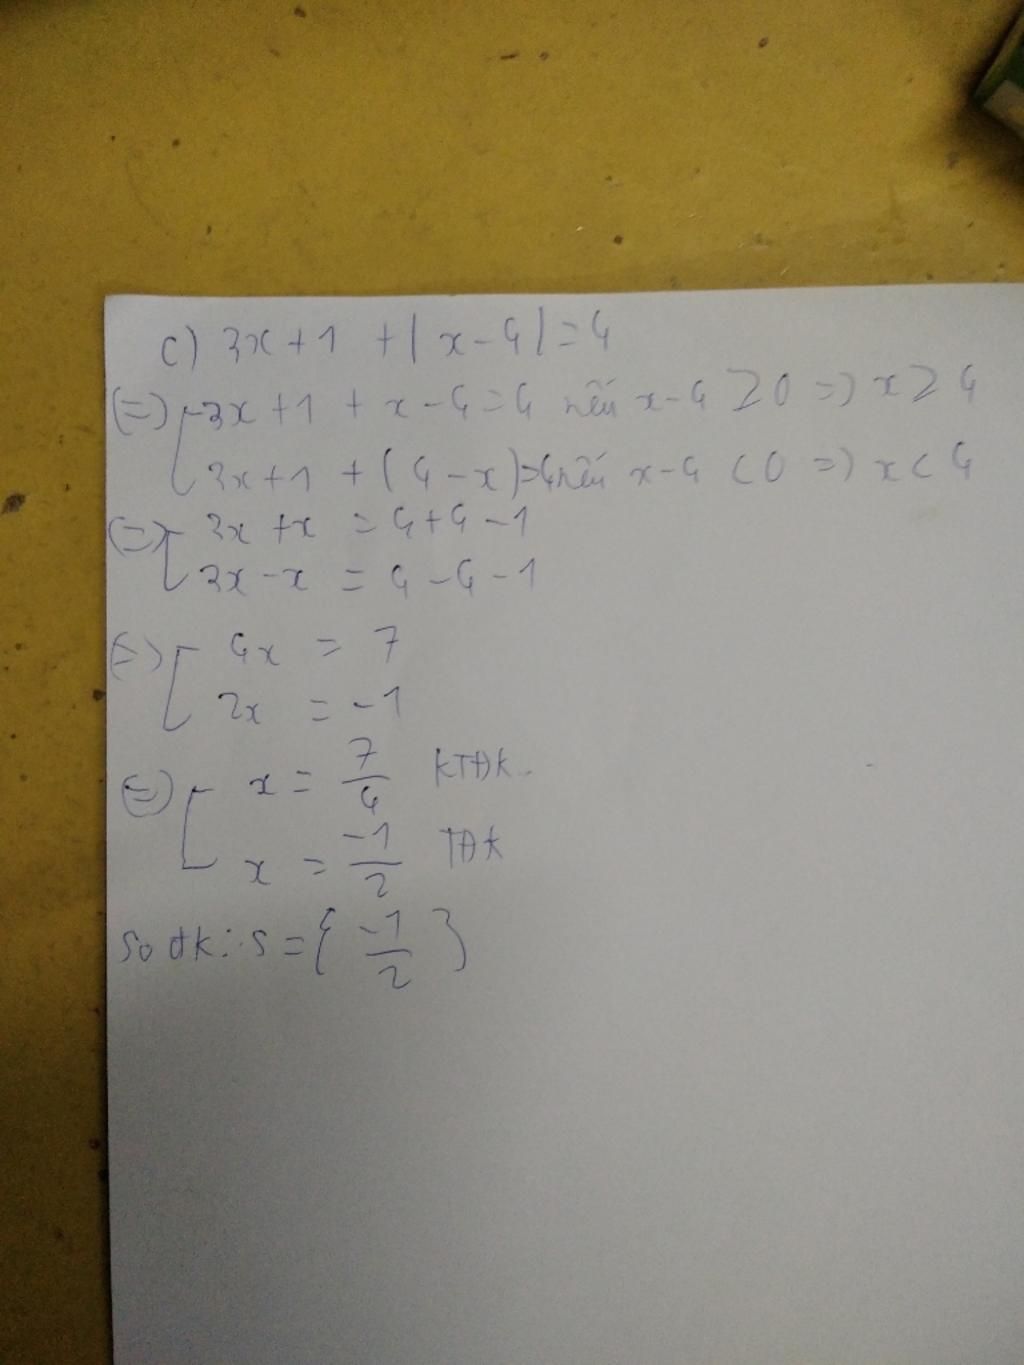 c) 3x + 1 + | x - 4 | = 4
(=) [ 3x + 1 + x - 4 = 4 nếu x - 4 ≥ 0 =) x ≥ 4
3x + 1 + ( 4 - x ) = 4 nếu x - 4 < 0 =) x < 4
(=) [ 3x + x = 4 + 4 - 1
3x - x = 4 - 4 - 1
(=) [ 4x = 7
2x = -1
(=) [ x = 7/4 KTĐK
x = -1/2 TĐK
So đk : S = { -1/2 }